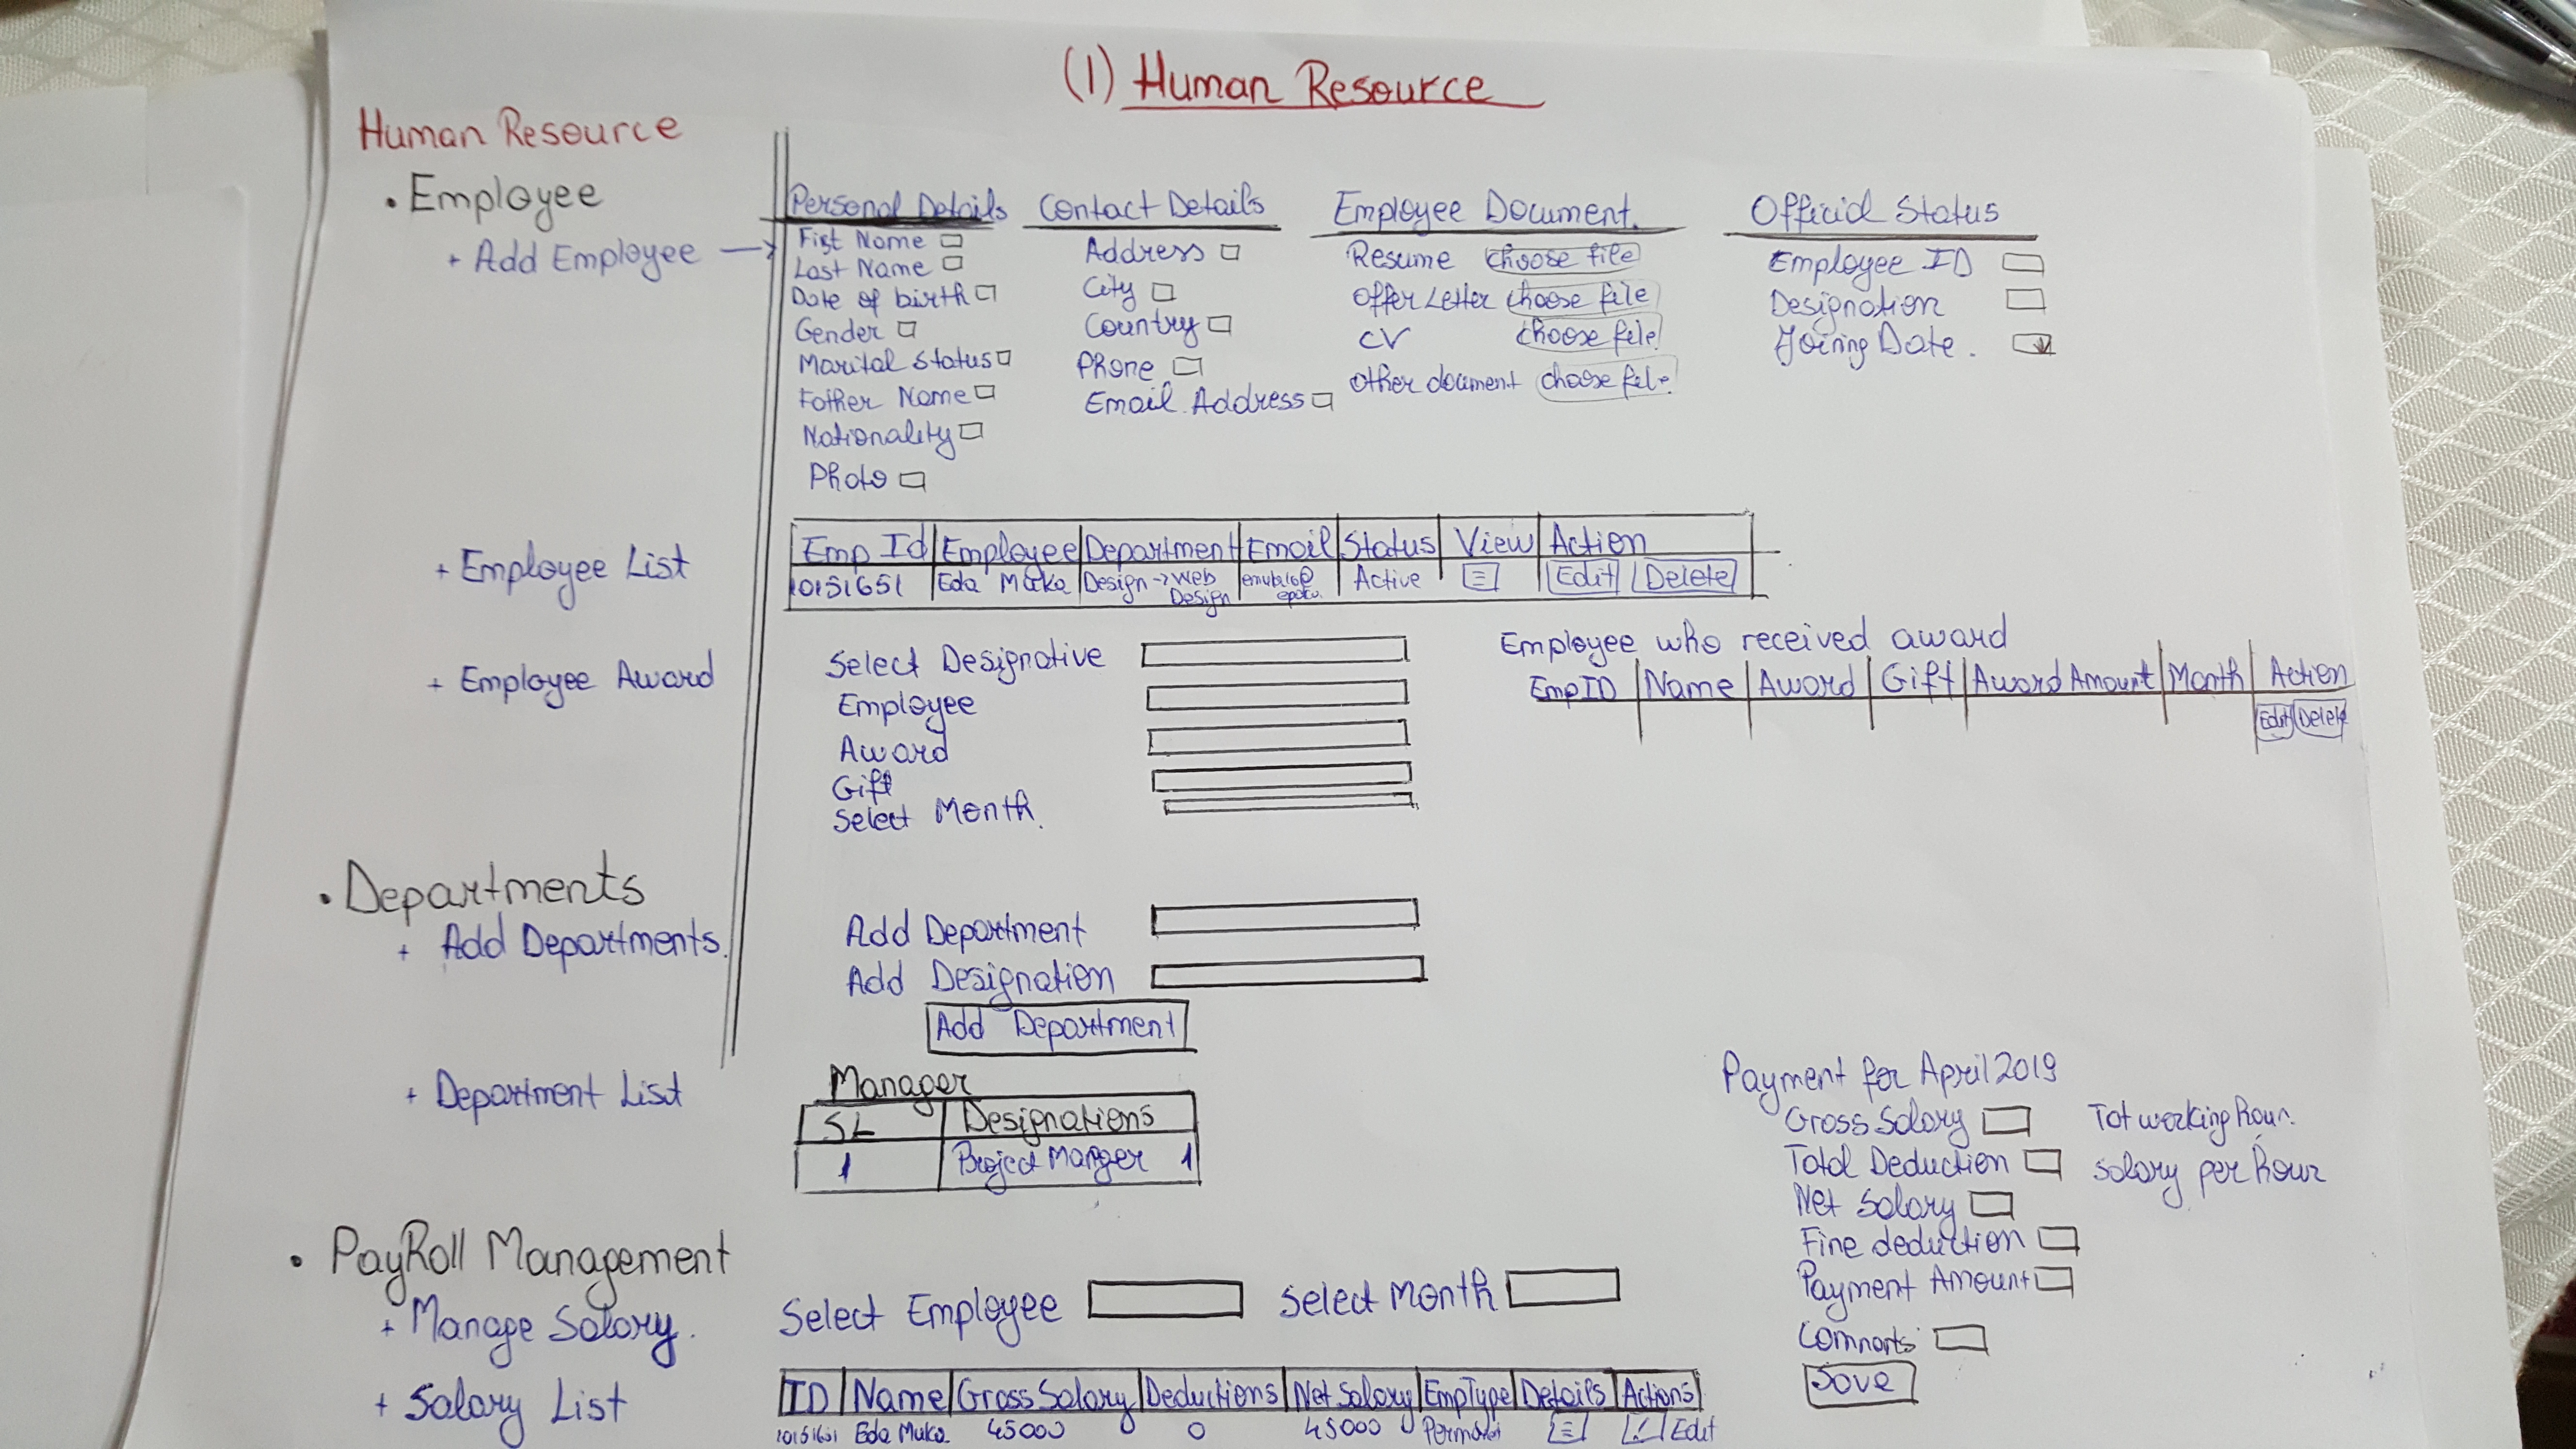 (1) Human Resource
Human Resource
• Employee
+ Add Employee →
Personal Details
First Name
Last Name
Date of birth
Gender
Marital Status
Father Name
Nationality
Photo
Contact Details
Address
City
Country
Phone
Email Address
Employee Document.
Resume choose file
Offer Letter choose file
CV choose file
Other document choose file
Official Status
Employee ID
Designation
Joining Date.
+ Employee List
Emp Id Employee Department Email Status View Action
10151651 Eda Muka Design → Web Design Active Edit Delete
+ Employee Award
Select Designative
Employee
Award
Gift
Select Month.
Employee who received award
Emp ID Name Award Gift Award Amount Month Action
Edit Delete
• Departments
+ Add Departments.
Add Department
Add Designation
Add Department
+ Department List
Manager
SL Designations
1 Project Manger 1
• PayRoll Management
+ Manage Salary.
Select Employee Select Month
Payment for April 2019
Gross Salary Tot working hour.
Total Deduction salary per hour
Net Salary
Fine deduction
Payment Amount
Save
+ Salary List
ID Name Gross Salary Deductions Net Salary Emp Type Details Actions
10151651 Eda Muka 45000 0 45000 Edit